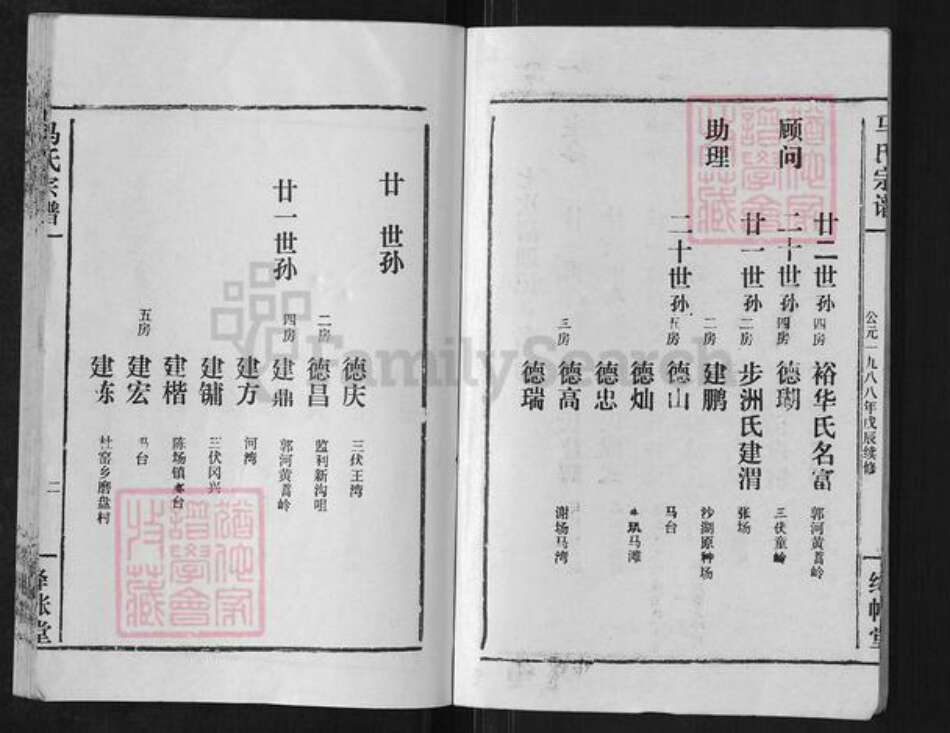 马氏宗谱
公元一九八八年戊辰续修
绛帐堂
顾问
廿二世孙 四房 裕华氏名富 郭河黄蒿岭
二十世孙 四房 德瑚 三伏童岭
助理
廿一世孙 二房 步洲氏建渭 张场
二房 建鹏 沙湖原种场
二十世孙 五房 德山 马台
德灿 马滩
德忠
三房 德高 谢场马湾
德瑞
廿世孙
德庆 三伏王湾
二房 德昌 监利新沟咀
廿一世孙
四房 建鼎 郭河黄蒿岭
建方 河湾
建镛 三伏冈兴
建楷 陈场镇台
五房 建宏 马台
建东 杜窑乡磨盘村
马氏宗谱
二
绛帐堂
FamilySearch